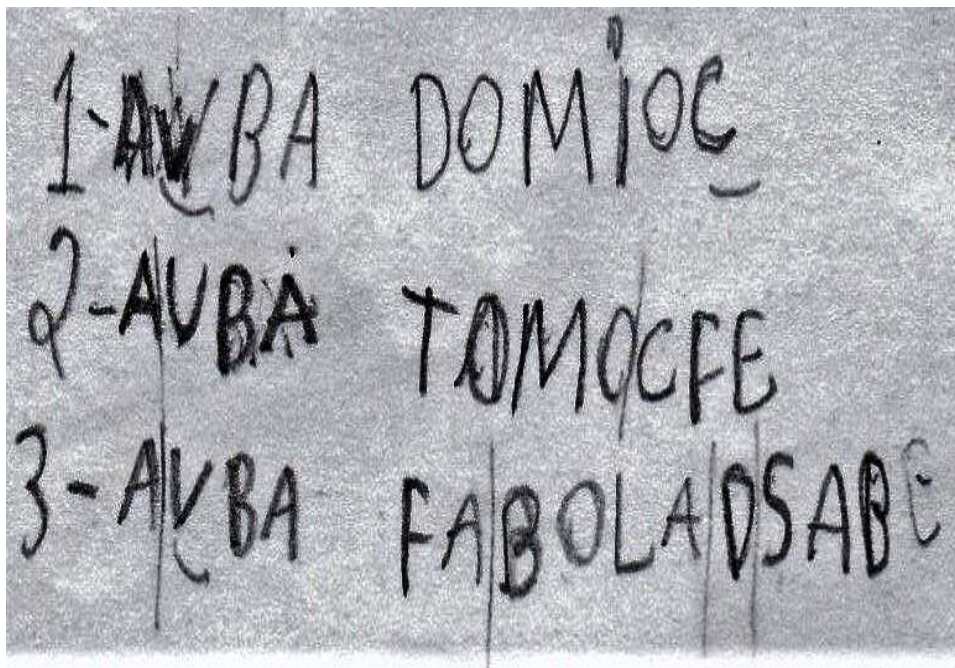 1-AVBA DOMIOC
2-AVBA TOMOCFE
3-AVBA FABOLADSABE